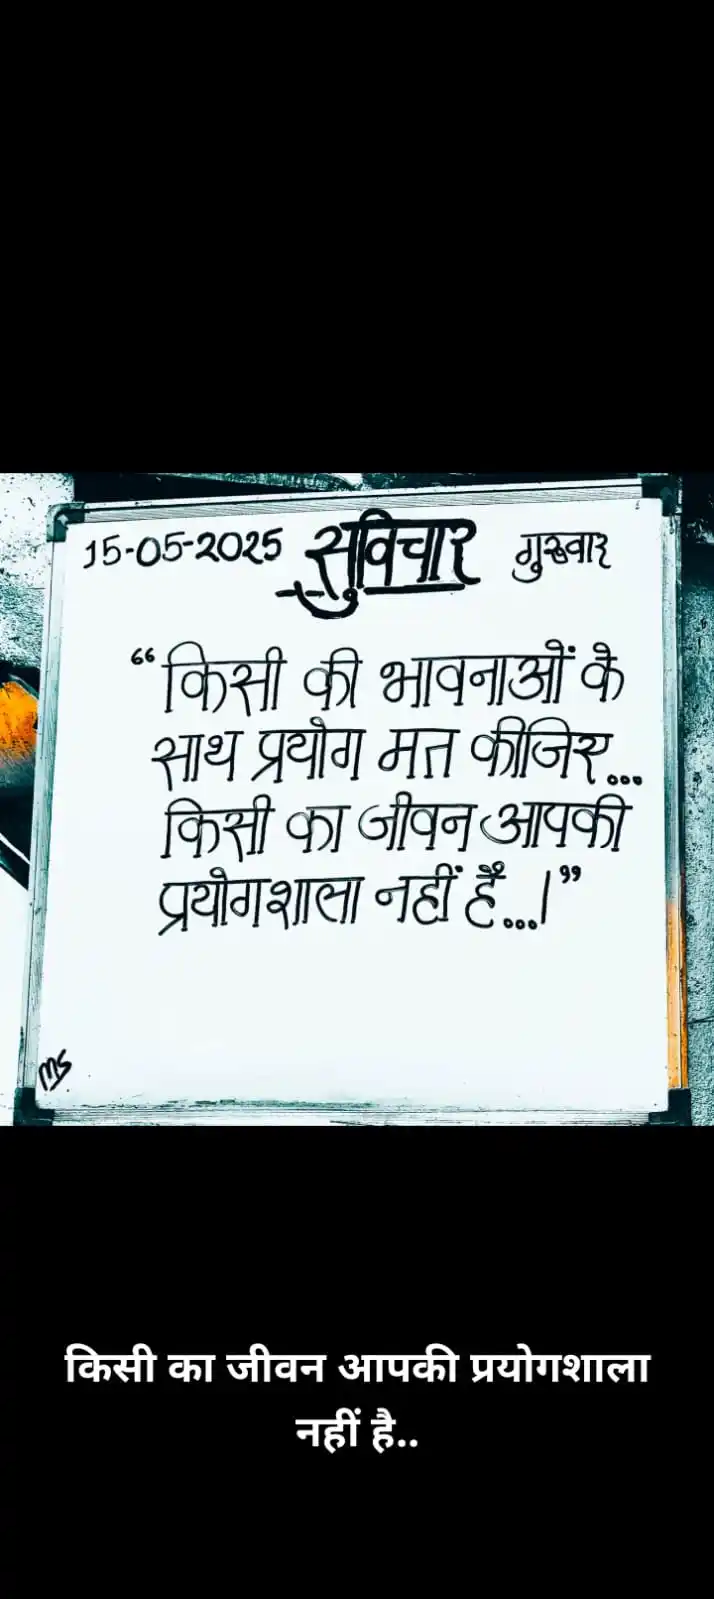 15-05-2025 सुविचार गुरुवार
“किसी की भावनाओं के
साथ प्रयोग मत कीजिए...
किसी का जीवन आपकी
प्रयोगशाला नहीं है...।”
MS
किसी का जीवन आपकी प्रयोगशाला
नहीं है..